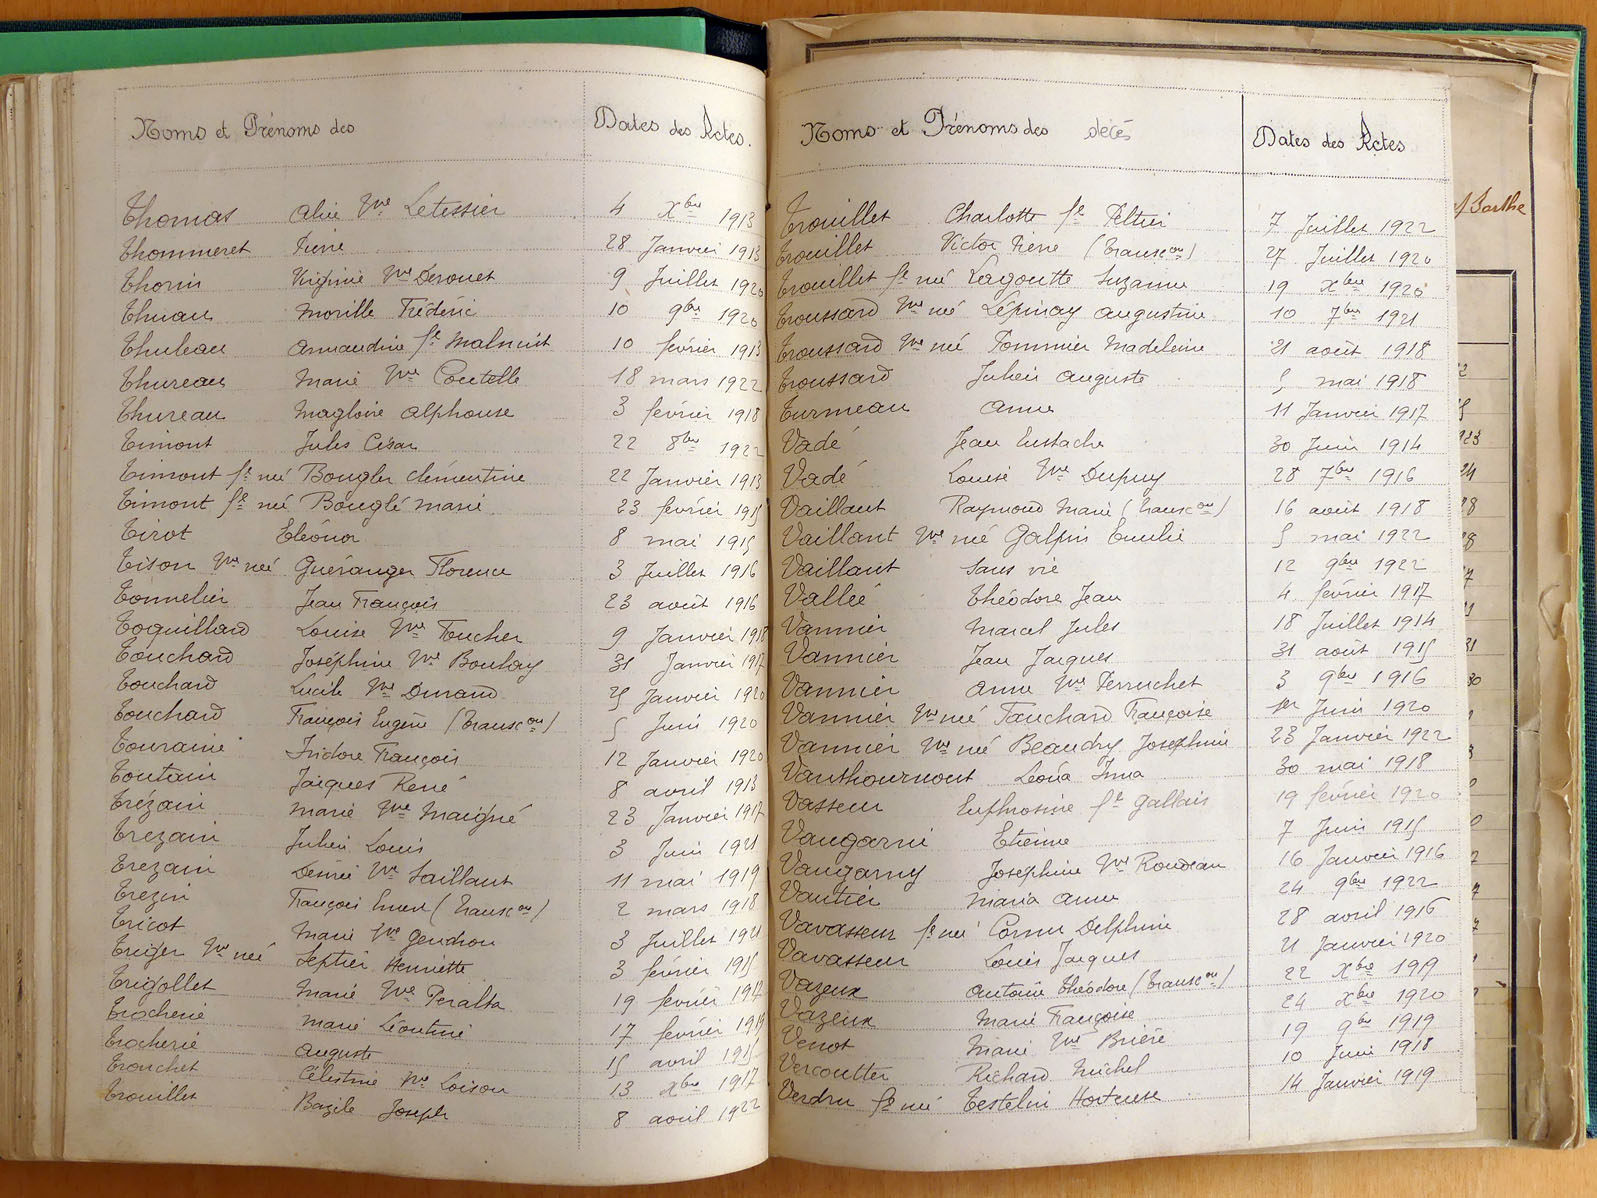 Noms et Prénoms des
Dates des Actes.
Thomas Alie Vve Letessier 4 Xbre 1913
Thommeret Pierre 28 Janvier 1913
Thorin Virginie Vve Derouet 9 Juillet 1920
Thuau Morille Frédéric 10 9bre 1920
Thuleau Armandine fe Malnuit 10 février 1913
Thureau Marie Vve Coutelle 18 mars 1922
Thureau Magloire Alphonse 3 février 1918
Timont Jules César 22 8bre 1922
Timont fe née Bougler Clémentine 22 Janvier 1913
Timont fe née Bouglé Marie 23 février 1915
Tirot Eléonor 8 mai 1915
Tison Vve née Guéranger Florence 3 Juillet 1916
Tonnelier Jean François 23 août 1916
Toquillard Louise Vve Foucher 9 Janvier 1918
Touchard Joséphine Vve Boulay 31 Janvier 1917
Touchard Lucile Vve Durand 25 Janvier 1920
Touchard François Eugène (Transcon) 5 Juin 1920
Touraine Isidore François 12 Janvier 1920
Toutain Jacques René 8 avril 1913
Trézain Marie Vve Maigné 23 Janvier 1917
Trezain Julien Louis 3 Juin 1921
Trezain Désirée Vve Saillant 11 mai 1919
Trezin François Ernest (Transcon) 2 mars 1918
Tricot Marie Vve Gendron 3 Juillet 1921
Triger Vve née Septier Henriette 3 février 1915
Trigollet Marie Vve Peralta 19 février
Trocherie Marie Léontine 17 février 1919
Trocherie Auguste 15 avril 1915
Trouchet Célestine Vve Loison 13 Xbre 1917
Trouillet Bazile Joseph 8 avril 1922
Noms et Prénoms des décés
Dates des Actes
Trouillet Charlotte fe Peltier 7 Juillet 1922
Trouillet Victor Pierre (Transcon) 27 Juillet 1920
Trouillet fe née Lagoutte Suzanne 19 Xbre 1920
Troussard Vve née Lépinay Augustine 10 7bre 1921
Troussard Vve née Pommier Madeleine 21 août 1918
Troussard Julien Auguste 5 mai 1918
Turmeau Anne 11 Janvier 1917
Vadé Jean Eustache 30 Juin 1914
Vadé Louise Vve Dupuy 28 7bre 1916
Vaillant Raymond Marie (Transcon) 16 août 1918
Vaillant Vve née Galpin Emilie 5 mai 1922
Vaillant Sans vie 12 9bre 1922
Vallée Théodore Jean 4 février 1917
Vannier Marcel Jules 18 Juillet 1914
Vannier Jean Jacques 31 aout 1915
Vannier Anne Vve Perruchet 3 9bre 1916
Vannier Vve née Fauchard Françoise 1er Juin 1920
Vannier Vve née Beaudry Josephine 23 Janvier 1922
Vanthournout Leona Irma 30 mai 1918
Vasseur Euphrosine fe Gallais 19 février 1920
Vaugarni Etienne 7 Juin 1915
Vaugarny Josephine Vve Rondeau 16 Janvier 1916
Vautier Maria Anne 24 9bre 1922
Vavasseur fe née Cornu Delphine 28 avril 1916
Vavasseur Louis Jacques 21 Janvier 1920
Vazeux Antoine Théodore (Transcon) 22 Xbre 1919
Vazeux Marie Françoise 24 Xbre 1920
Venot Marie Vve Brière 19 9bre 1919
Vercoutter Richard Michel 10 Juin 1918
Verdru fe née Testelin Hortense 14 Janvier 1919
Sarthe